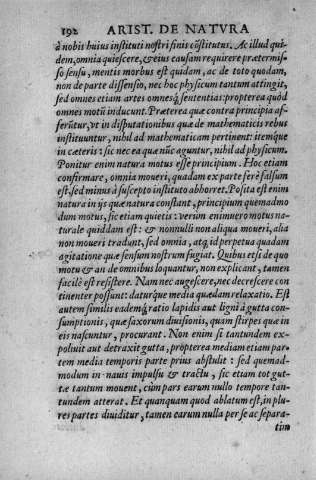 192 ARIST. DE NATVRA
à nobis huius instituti nostri finis cõstitutus. Ac illud qui-
dem, omnia quiescere, & eius causam requirere prætermis-
so sensu, mentis morbus est quidam, ac de toto quodam,
non de parte dissensio, nec hoc physicum tantum attingit,
sed omnes etiam artes omnesq; sententias: propterea quòd
omnes motũ inducunt. Præterea quæ contra principia af-
ferũtur, vt in disputationibus quæ de mathematicis rebus
instituuntur, nihil ad mathematicam pertinent: itemq́ue
in cæteris: sic nec ea quæ nũc aguntur, nihil ad physicum.
Ponitur enim natura motus esse principium. Hoc etiam
confirmare, omnia moueri, quadam ex parte ferè falsum
est, sed minùs à suscepto instituto abhorret. Posita est enim
natura in ijs quæ natura constant, principium quemadmo
dum motus, sic etiam quietis: verùm enimuero motus na-
turale quiddam est: & nonnulli non aliqua moueri, alia
non moueri tradunt, sed omnia, atq; id perpetua quadam
agitatione quæ sensum nostrum fugiat. Quibus etsi de quo
motu & an de omnibus loquantur, non explicant, tamen
facilè est resistere. Nam nec augescere, nec decrescere con
tinenter possunt: daturq́ue media quædam relaxatio. Est
autem similis eademq́; ratio lapidis aut ligni à gutta con-
sumptionis, quæ saxorum diuisionis, quam stirpes quæ in
eis nascuntur, procurant. Non enim si tantundem ex-
poliuit aut detraxit gutta, propterea mediam etiam par-
tem media temporis parte prius abstulit: sed quemad-
modum in nauis impulsu & tractu, sic etiam tot gut-
tæ tantum mouent, cùm pars earum nullo tempore tan-
tundem atterat. Et quanquam quod ablatum est, in plu-
res partes diuiditur, tamen earum nulla per se ac separa-
tim